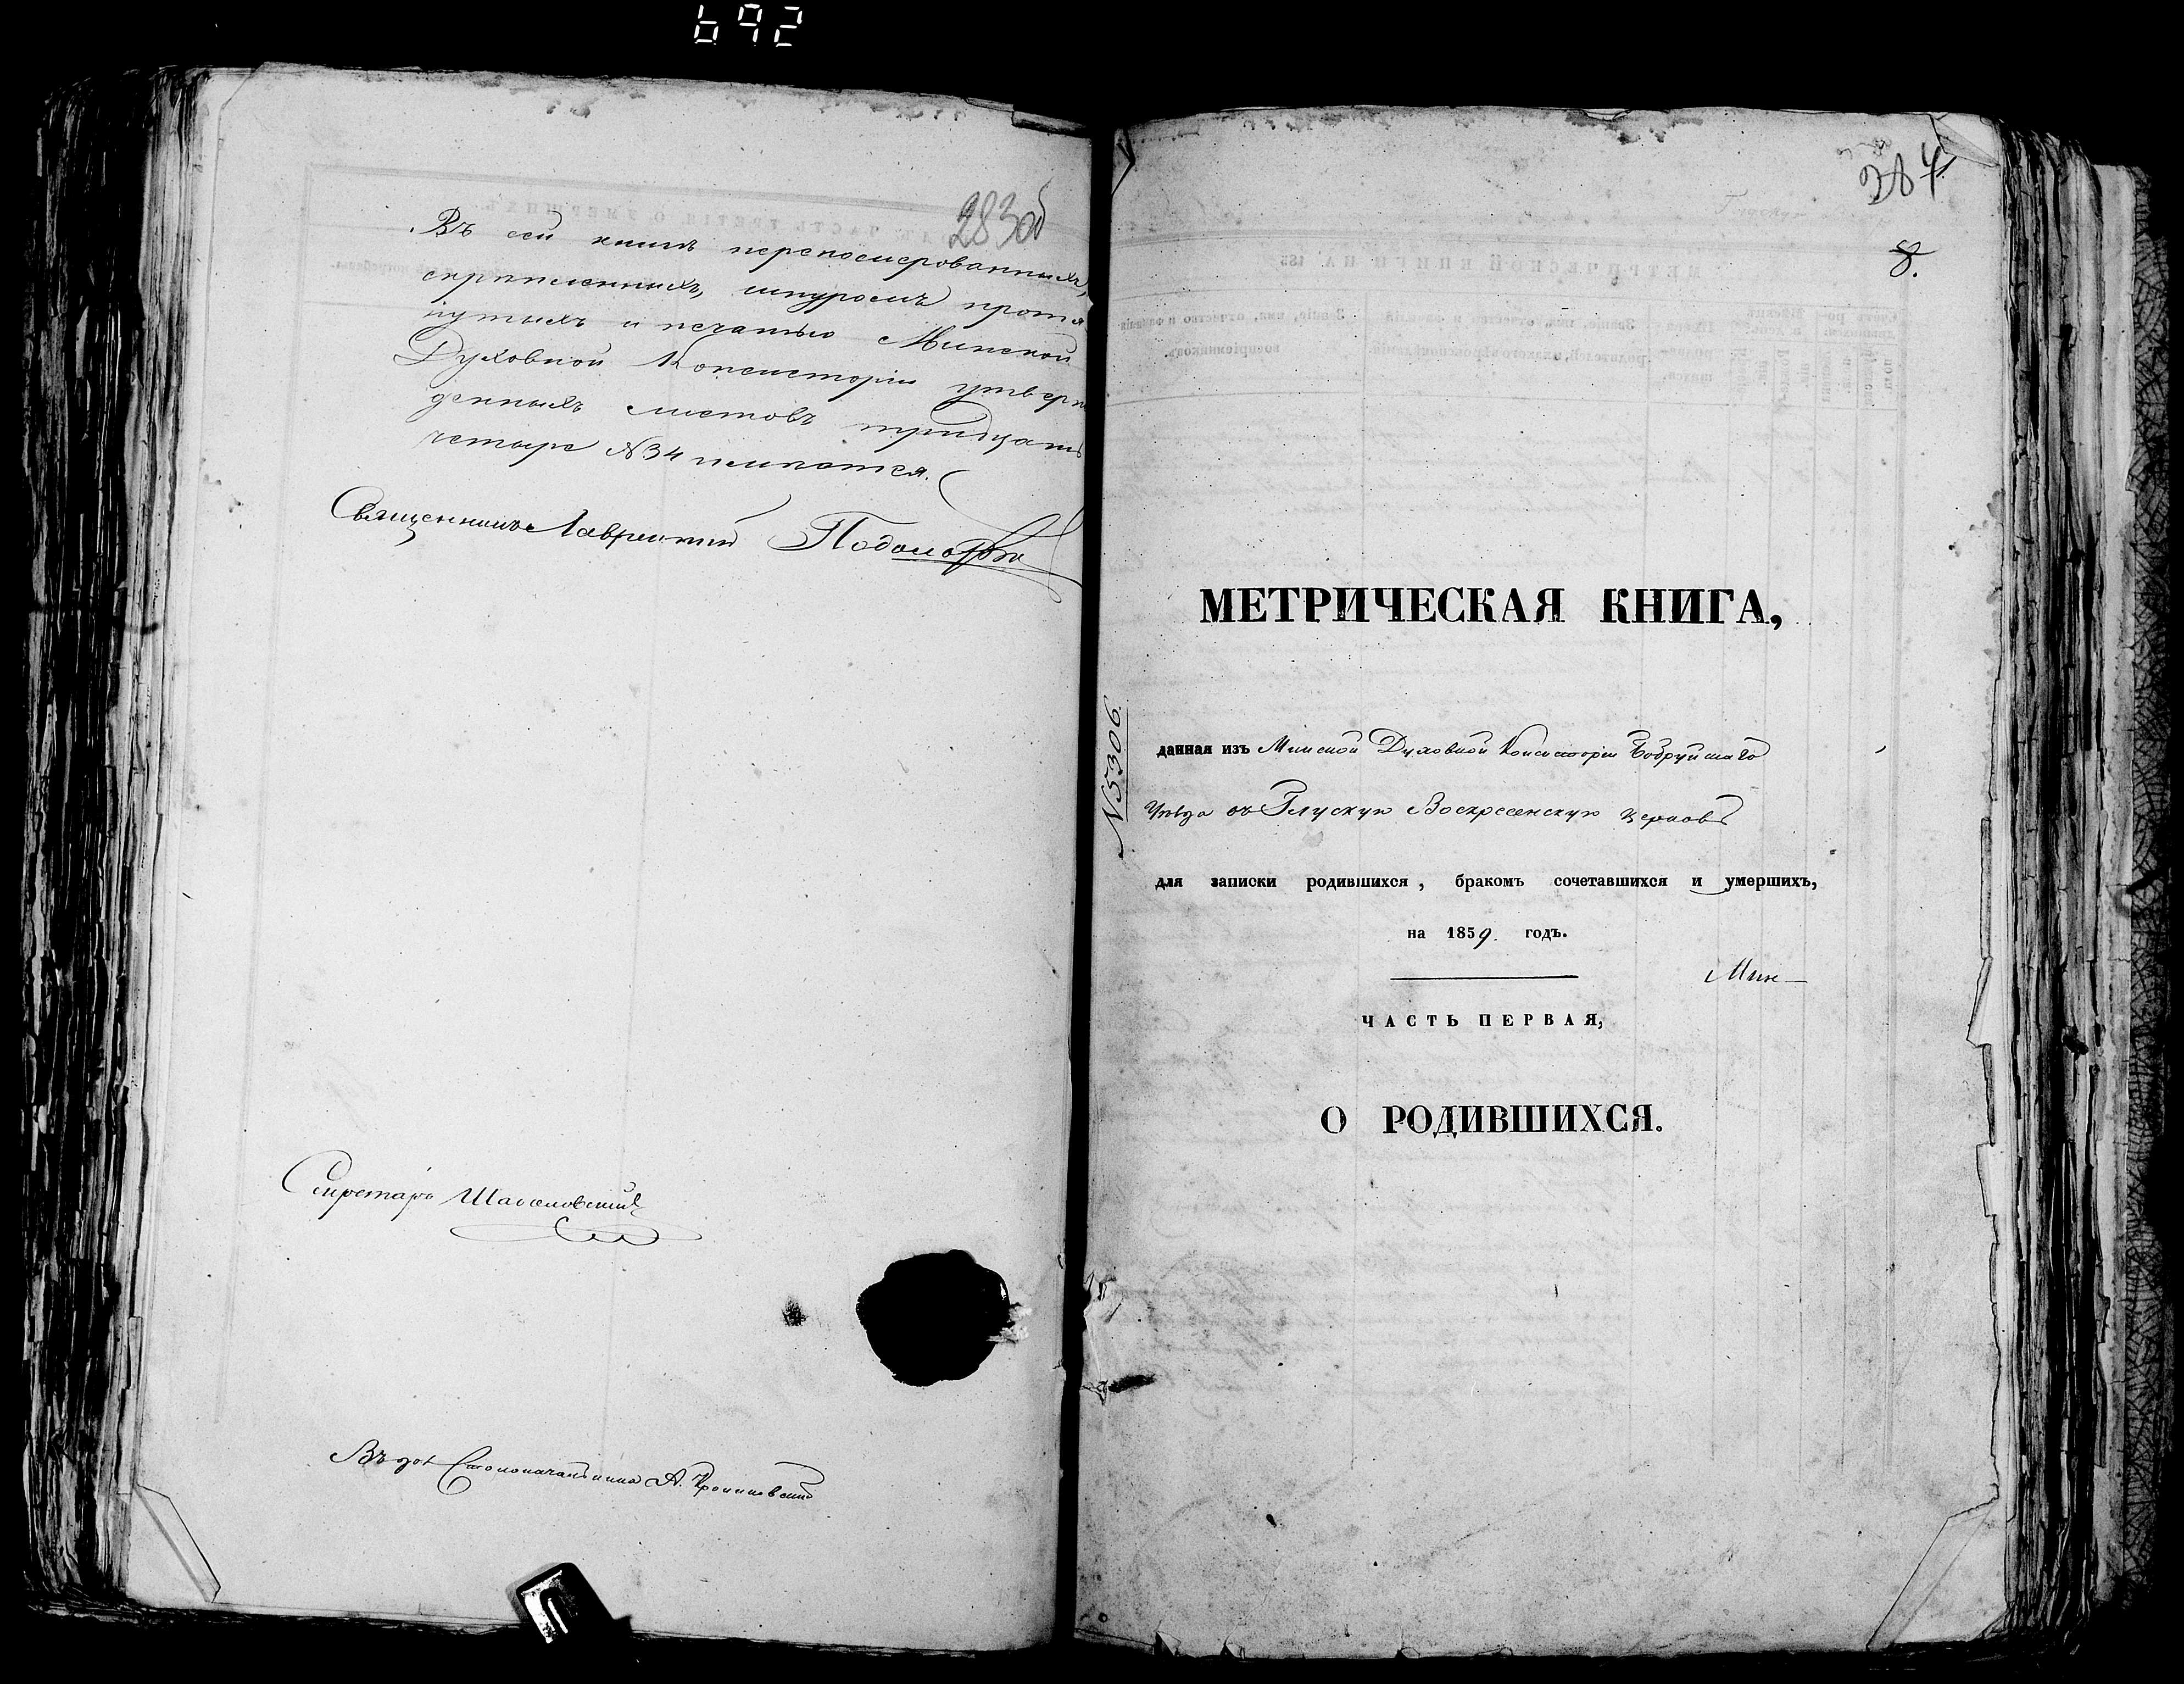 692
283об
Въ сей книгѣ переномерованныхъ,
скрѣпленныхъ, шнуромъ протя
нутыхъ и печатью Минской
Духовной Консисторіи утверж
денныхъ листовъ тридцать
четыре №34 имѣются.
Священникъ Лаврентій
Секретарь
Столоначальника А.
284
8.
МЕТРИЧЕСКАЯ КНИГА,
№5306.
данная изъ Минской Духовной Консисторіи Бобруйскаго
Уѣзда въ Глускую Воскресенскую церковь
для записки родившихся, бракомъ сочетавшихся и умершихъ,
на 1859. годъ.
Мин—
ЧАСТЬ ПЕРВАЯ,
О РОДИВШИХСЯ.